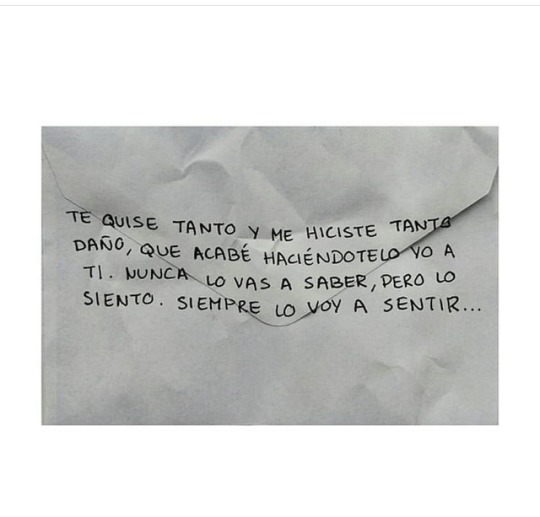 TE QUISE TANTO Y ME HICISTE TANTO
DAÑO, QUE ACABÉ HACIÉNDOTELO YO A
TI. NUNCA LO VAS A SABER, PERO LO
SIENTO. SIEMPRE LO VOY A SENTIR...